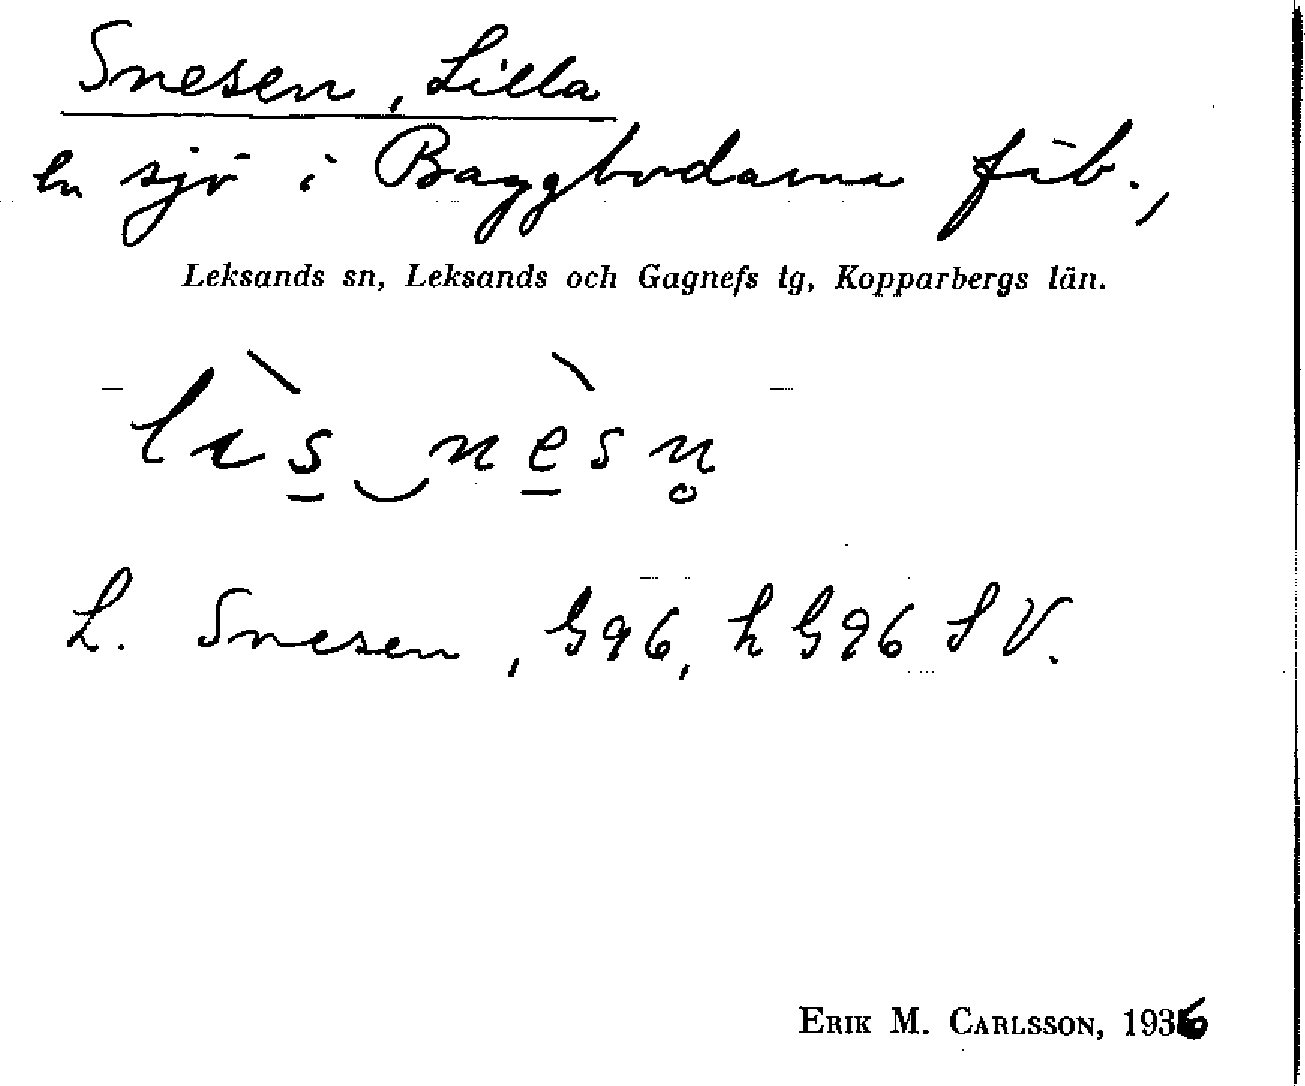 Snesen, Lilla
en sjö i Baggbodarna fäb.,
Leksands sn, Leksands och Gagnefs tg, Kopparbergs län.
L. Snesen, G96, h G96 SV.
ERIK M. CARLSSON, 1936